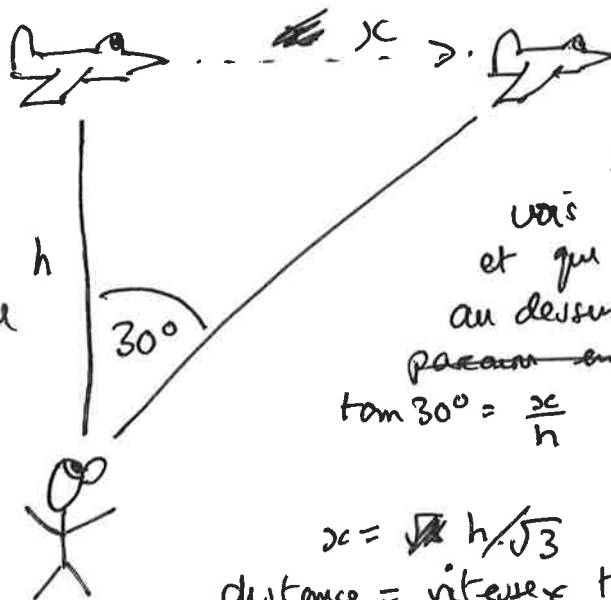 x
h
30°
vois
et que
au dessus
tan 30° = x/h
x = h/√3
distance = vitesse x t